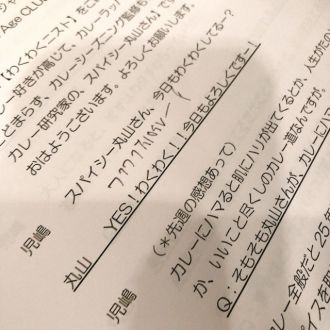 Age CLU
【わくわくニスト】をこ
レー好きが高じて、カレーラッ
とどまらず、カレーシーズニング監修も
カレー研究家の、スパイシー丸山さんです
おはようございます。よろしくお願いします。
児嶋　スパイシー丸山さん、今日もわくわくしてるー？
丸山　YES！わくわく！！今日もよろしくですー！
児嶋　（＊先週の感想あって）
カレーにハマると肌にハリが出てくるとか、人生がた
か、いいこと尽くしのカレー道なんですが。
Q：そもそも丸山さんが、カレーにハ
カレー全般だと 25
スパイスを取